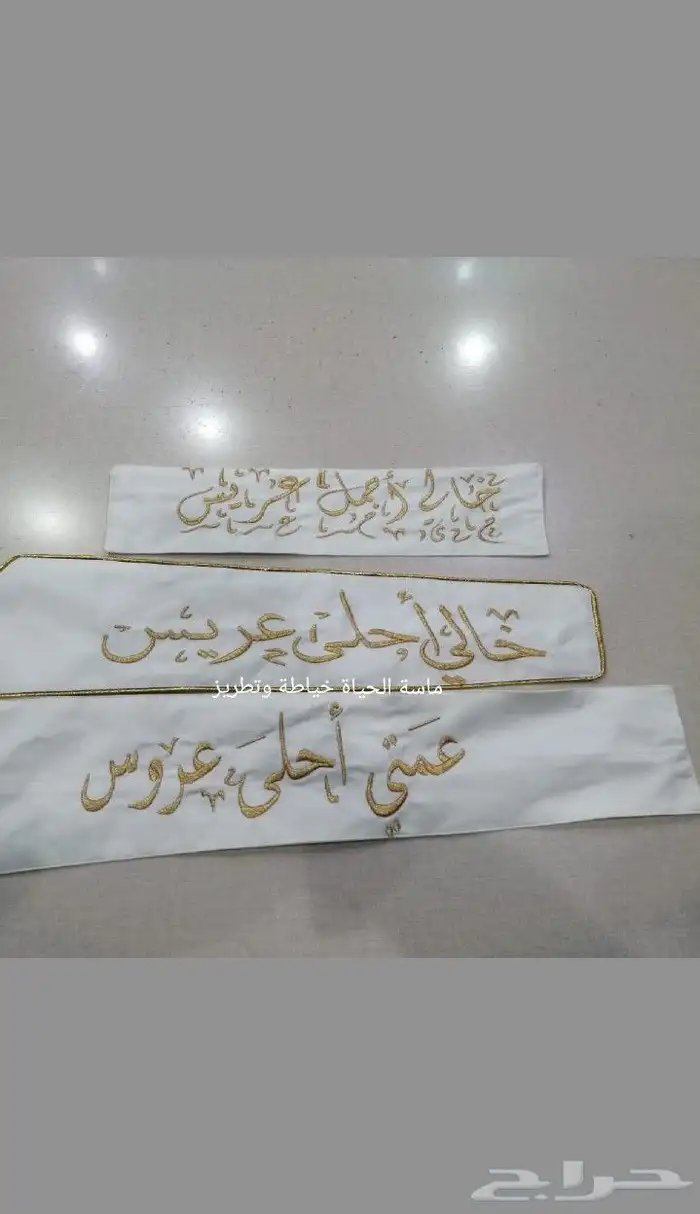 خالي أجمل عريس
خالي أحلى عريس
ماسة الحياة خياطة وتطريز
عمتي أحلى عروس
حراج